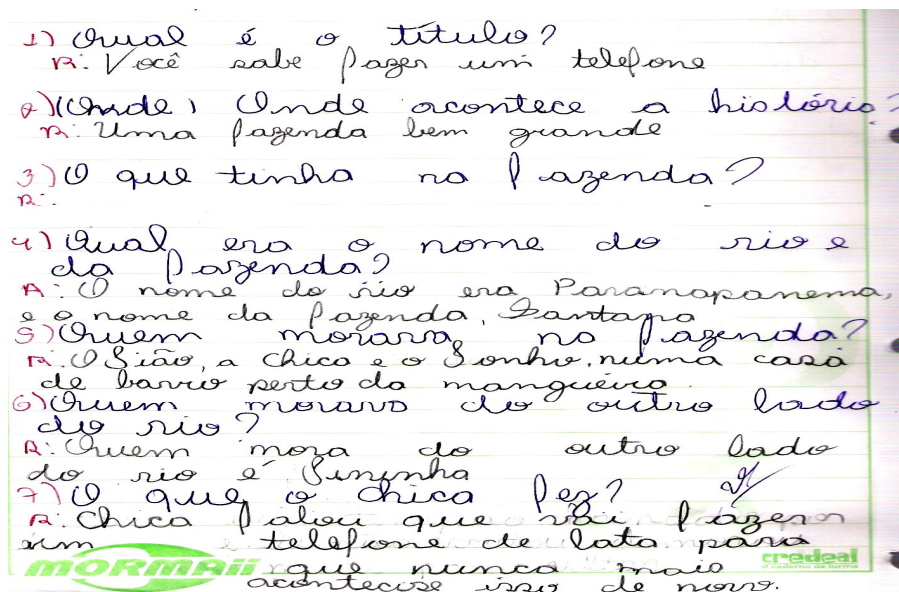 1) Qual é o título?
R: Você sabe fazer um telefone
2) (Onde) Onde acontece a história?
R: Uma fazenda bem grande
3) O que tinha na fazenda?
R:
4) Qual era o nome do rio e
da fazenda?
R: O nome do rio era Paranapanema,
e o nome da fazenda, Santana
5) Quem morava na fazenda?
R: O Sião, a chica e o Sonho, numa casa
de barro perto da mangueira.
6) Quem morava do outro lado
do rio?
R: Quem mora do outro lado
do rio é
7) O que o chica fez?
R: Chica falou que vai fazer
um telefone de lata para
que nunca mais
acontecese isso de novo.
MORMAII
credeal
o caderno da turma